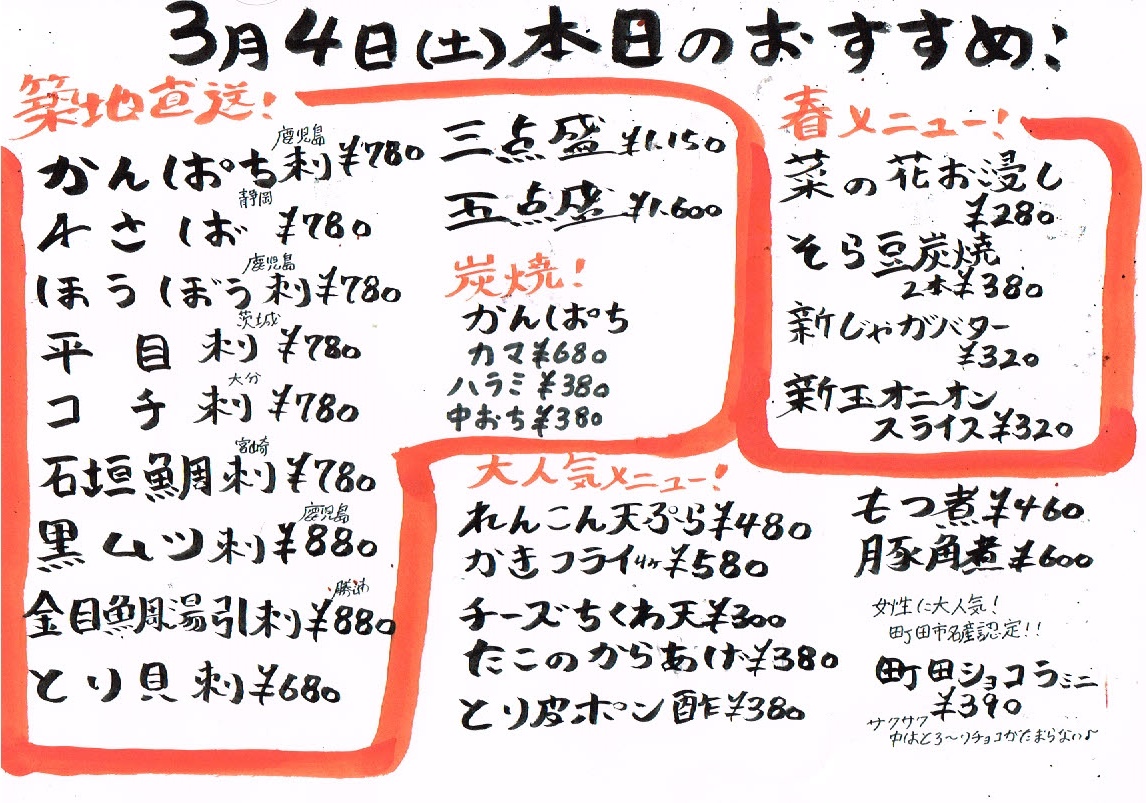 3月4日(土)本日のおすすめ!
築地直送!
鹿児島
かんぱち刺¥780
静岡
〆さば ¥780
鹿児島
ほうぼう刺¥780
茨城
平目刺 ¥780
大分
コチ刺 ¥780
宮崎
石垣鯛刺 ¥780
鹿児島
黒ムツ刺 ¥880
勝浦
金目鯛湯引刺 ¥880
とり貝刺 ¥680
三点盛 ¥1.150
五点盛 ¥1.600
炭焼!
かんぱち
カマ ¥680
ハラミ ¥380
中おち ¥380
春メニュー!
菜の花お浸し
¥280
そら豆炭焼
2本¥380
新じゃがバター
¥320
新玉オニオン
スライス¥320
大人気メニュー!
れんこん天ぷら¥480
かきフライ4ケ¥580
チーズちくわ天¥300
たこのからあげ¥380
とり皮ポン酢¥380
もつ煮¥460
豚角煮¥600
女性に大人気!
町田市名産認定!!
町田ショコラミニ
¥390
サクサク
中はとろ〜りチョコがたまらない♪